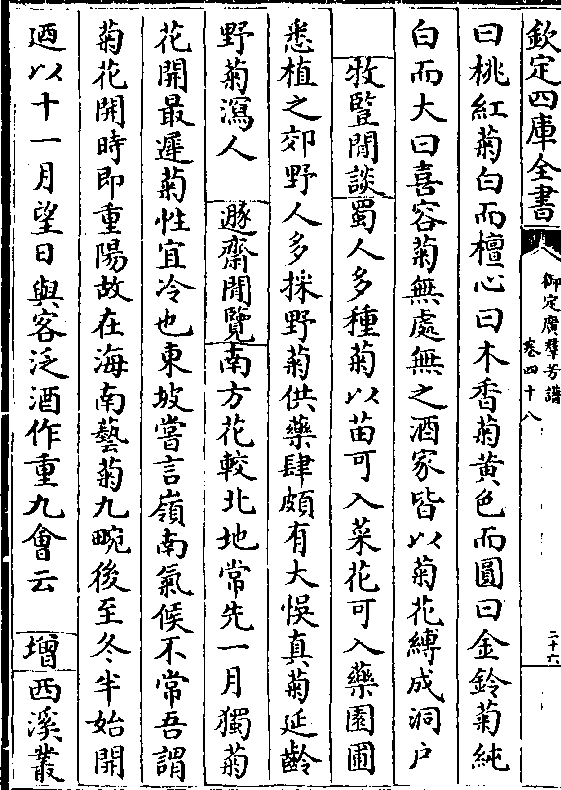 欽定四庫全書
御定廣羣芳譜
卷四十八
二十六
曰桃紅菊白而檀心曰木香菊黄色而圓曰金鈴菊純
白而大曰喜容菊無處無之酒家皆以菊花縛成洞户
牧豎閒談蜀人多種菊以苗可入菜花可入藥園圃
悉植之郊野人多採野菊供藥肆頗有大悞真菊延齡
野菊瀉人　遯齋閒覽南方花較北地常先一月獨菊
花開最遲菊性宜冷也東坡嘗言嶺南氣候不常吾謂
菊花開時即重陽故在海南藝菊九畹後至冬半始開
迺以十一月望日與客泛酒作重九會云　增西溪叢